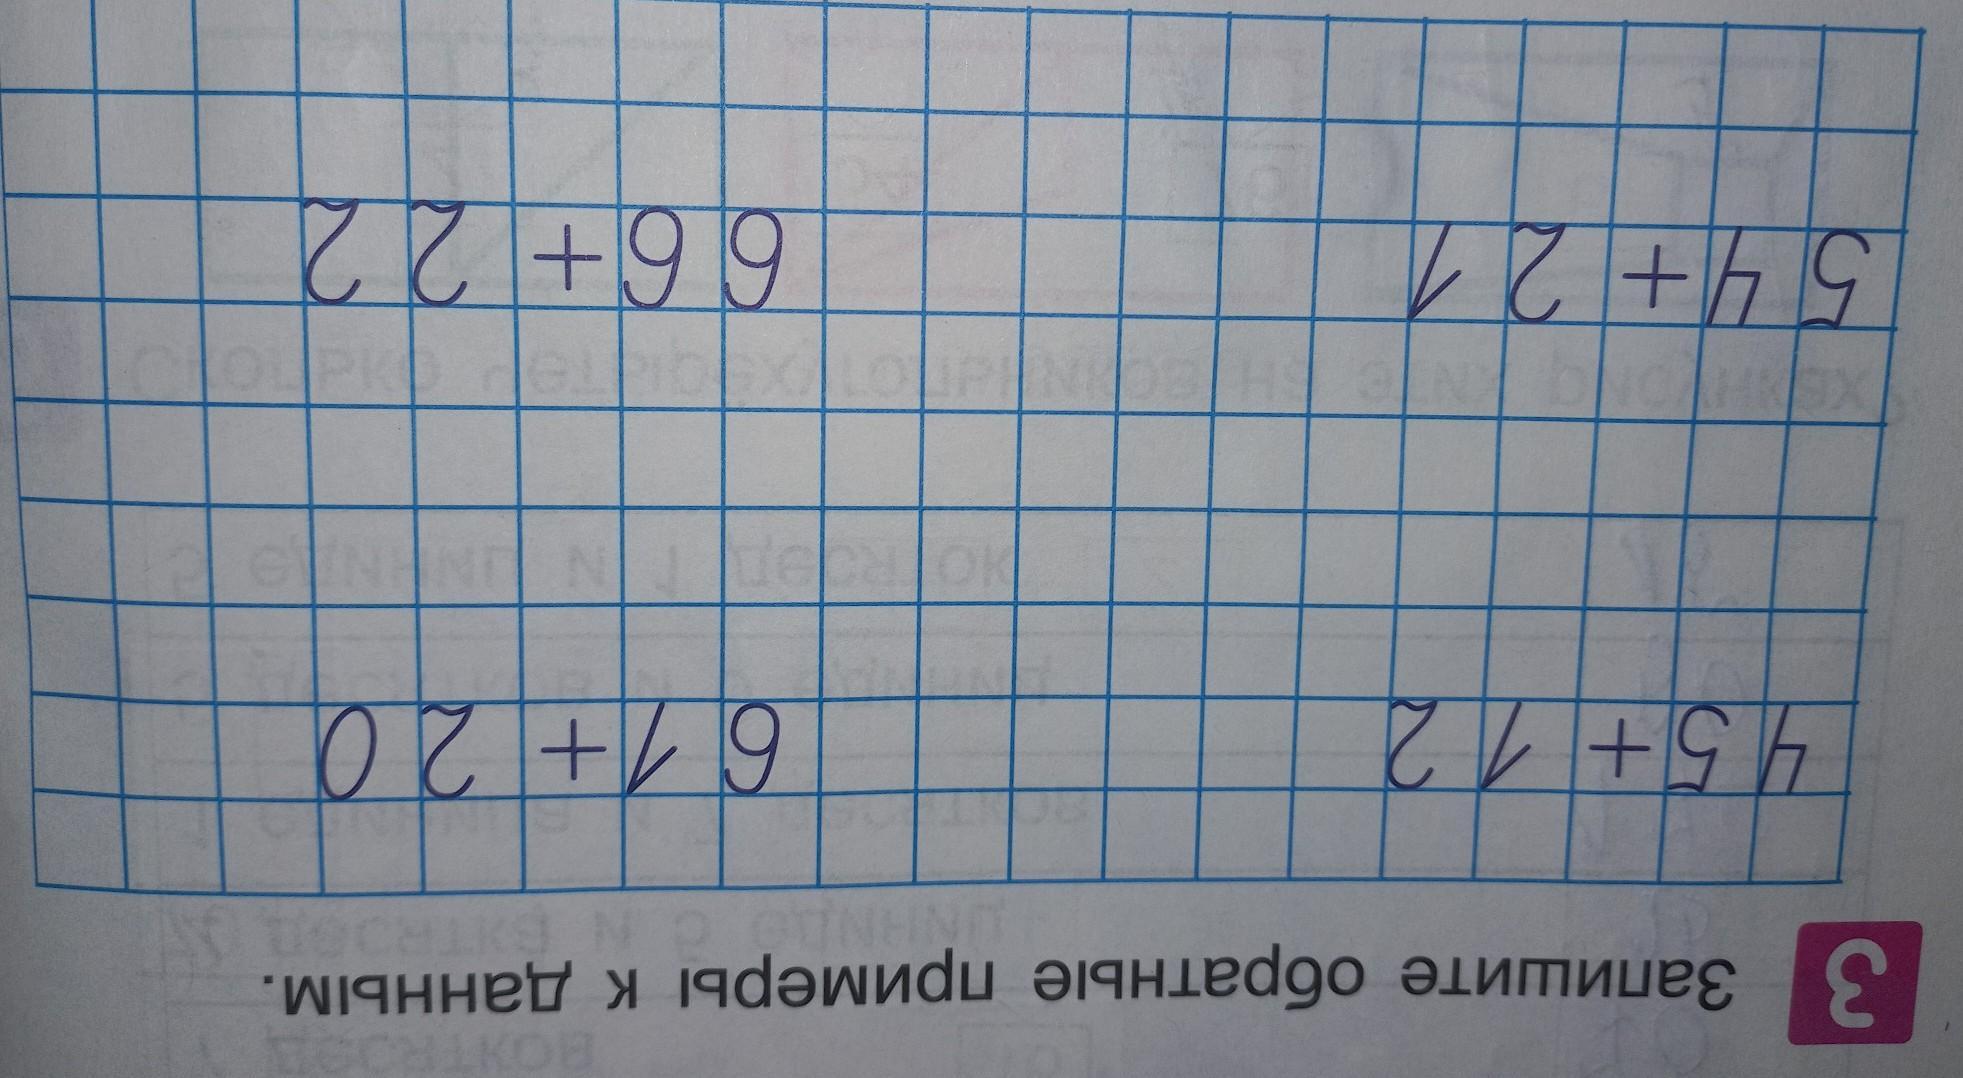 3 Запишите обратные примеры к данным.
45+12 61+20
54+21 66+22